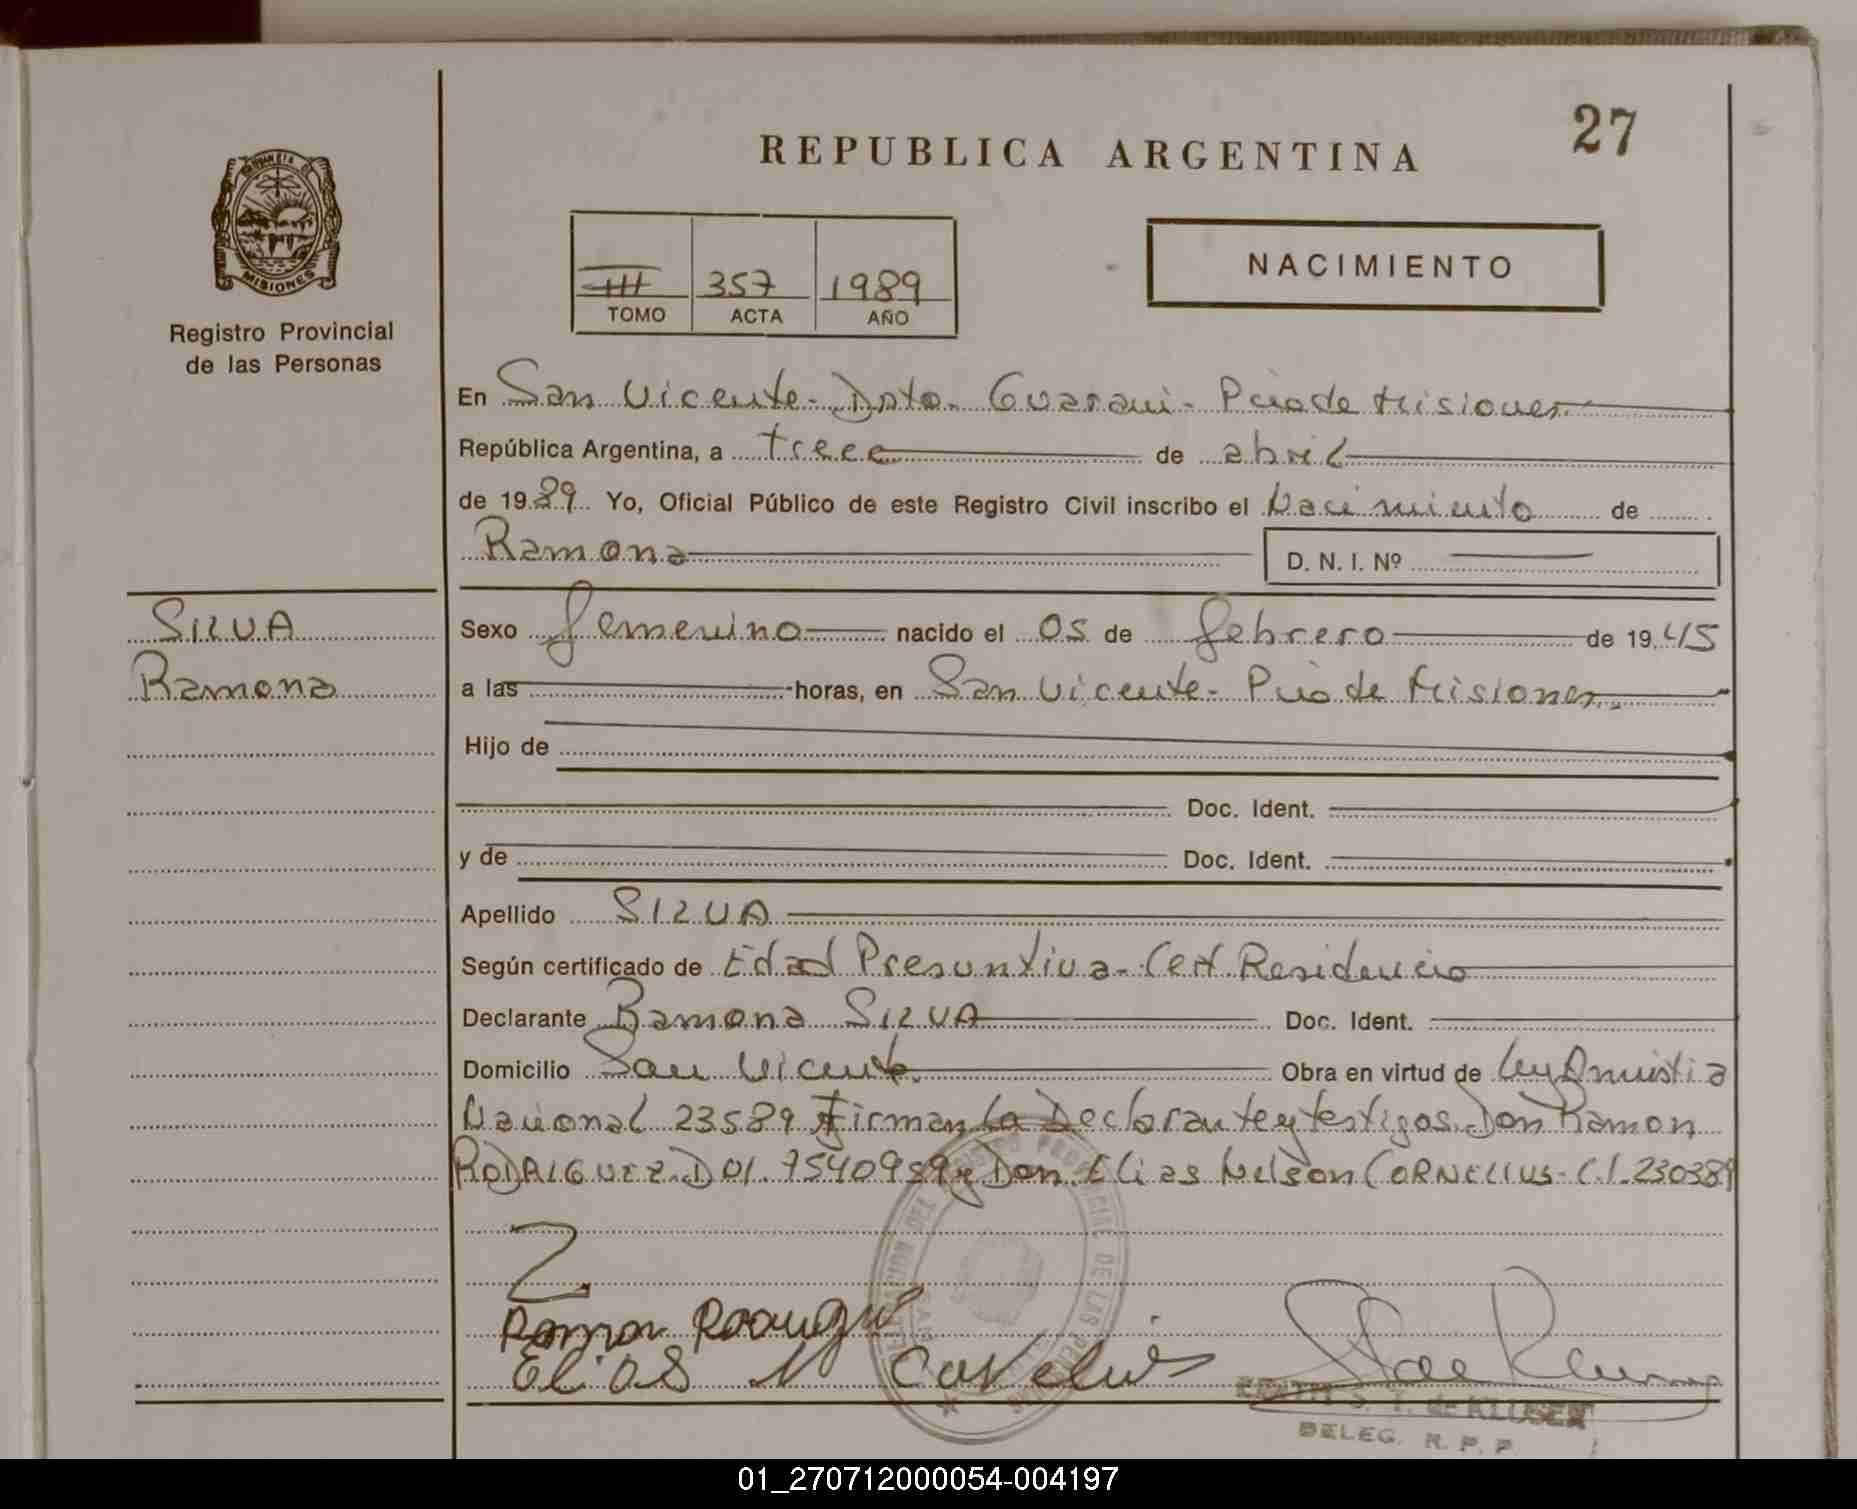 27
REPUBLICA ARGENTINA
MISIONES
Registro Provincial
de las Personas
NACIMIENTO
III 357 1989
TOMO ACTA AÑO
En San Vicente - Dpto. Guarani - Pcia de Misiones
República Argentina, a trece de abril
de 1989 Yo, Oficial Público de este Registro Civil inscribo el Nacimiento de
Ramona D. N. I. Nº
SILVA
Ramona
Sexo femenino nacido el 05 de febrero de 1945
a las horas, en San Vicente - Pcia de Misiones
Hijo de
Doc. Ident.
y de Doc. Ident.
Apellido SILVA
Según certificado de Edad Presuntiva - Cert Residencia
Declarante Ramona SILVA Doc. Ident.
Domicilio San Vicente Obra en virtud de Ley Amnistia
Nacional 23589 Firman la Declarante y testigos Don Ramon
RODRIGUEZ - D01. 7540959 y Don Elias Nelson CORNELIUS - C.I. 230389
Ramon
Elias N
DE KLUSER
DELEG. R. P. P.
01_270712000054-004197